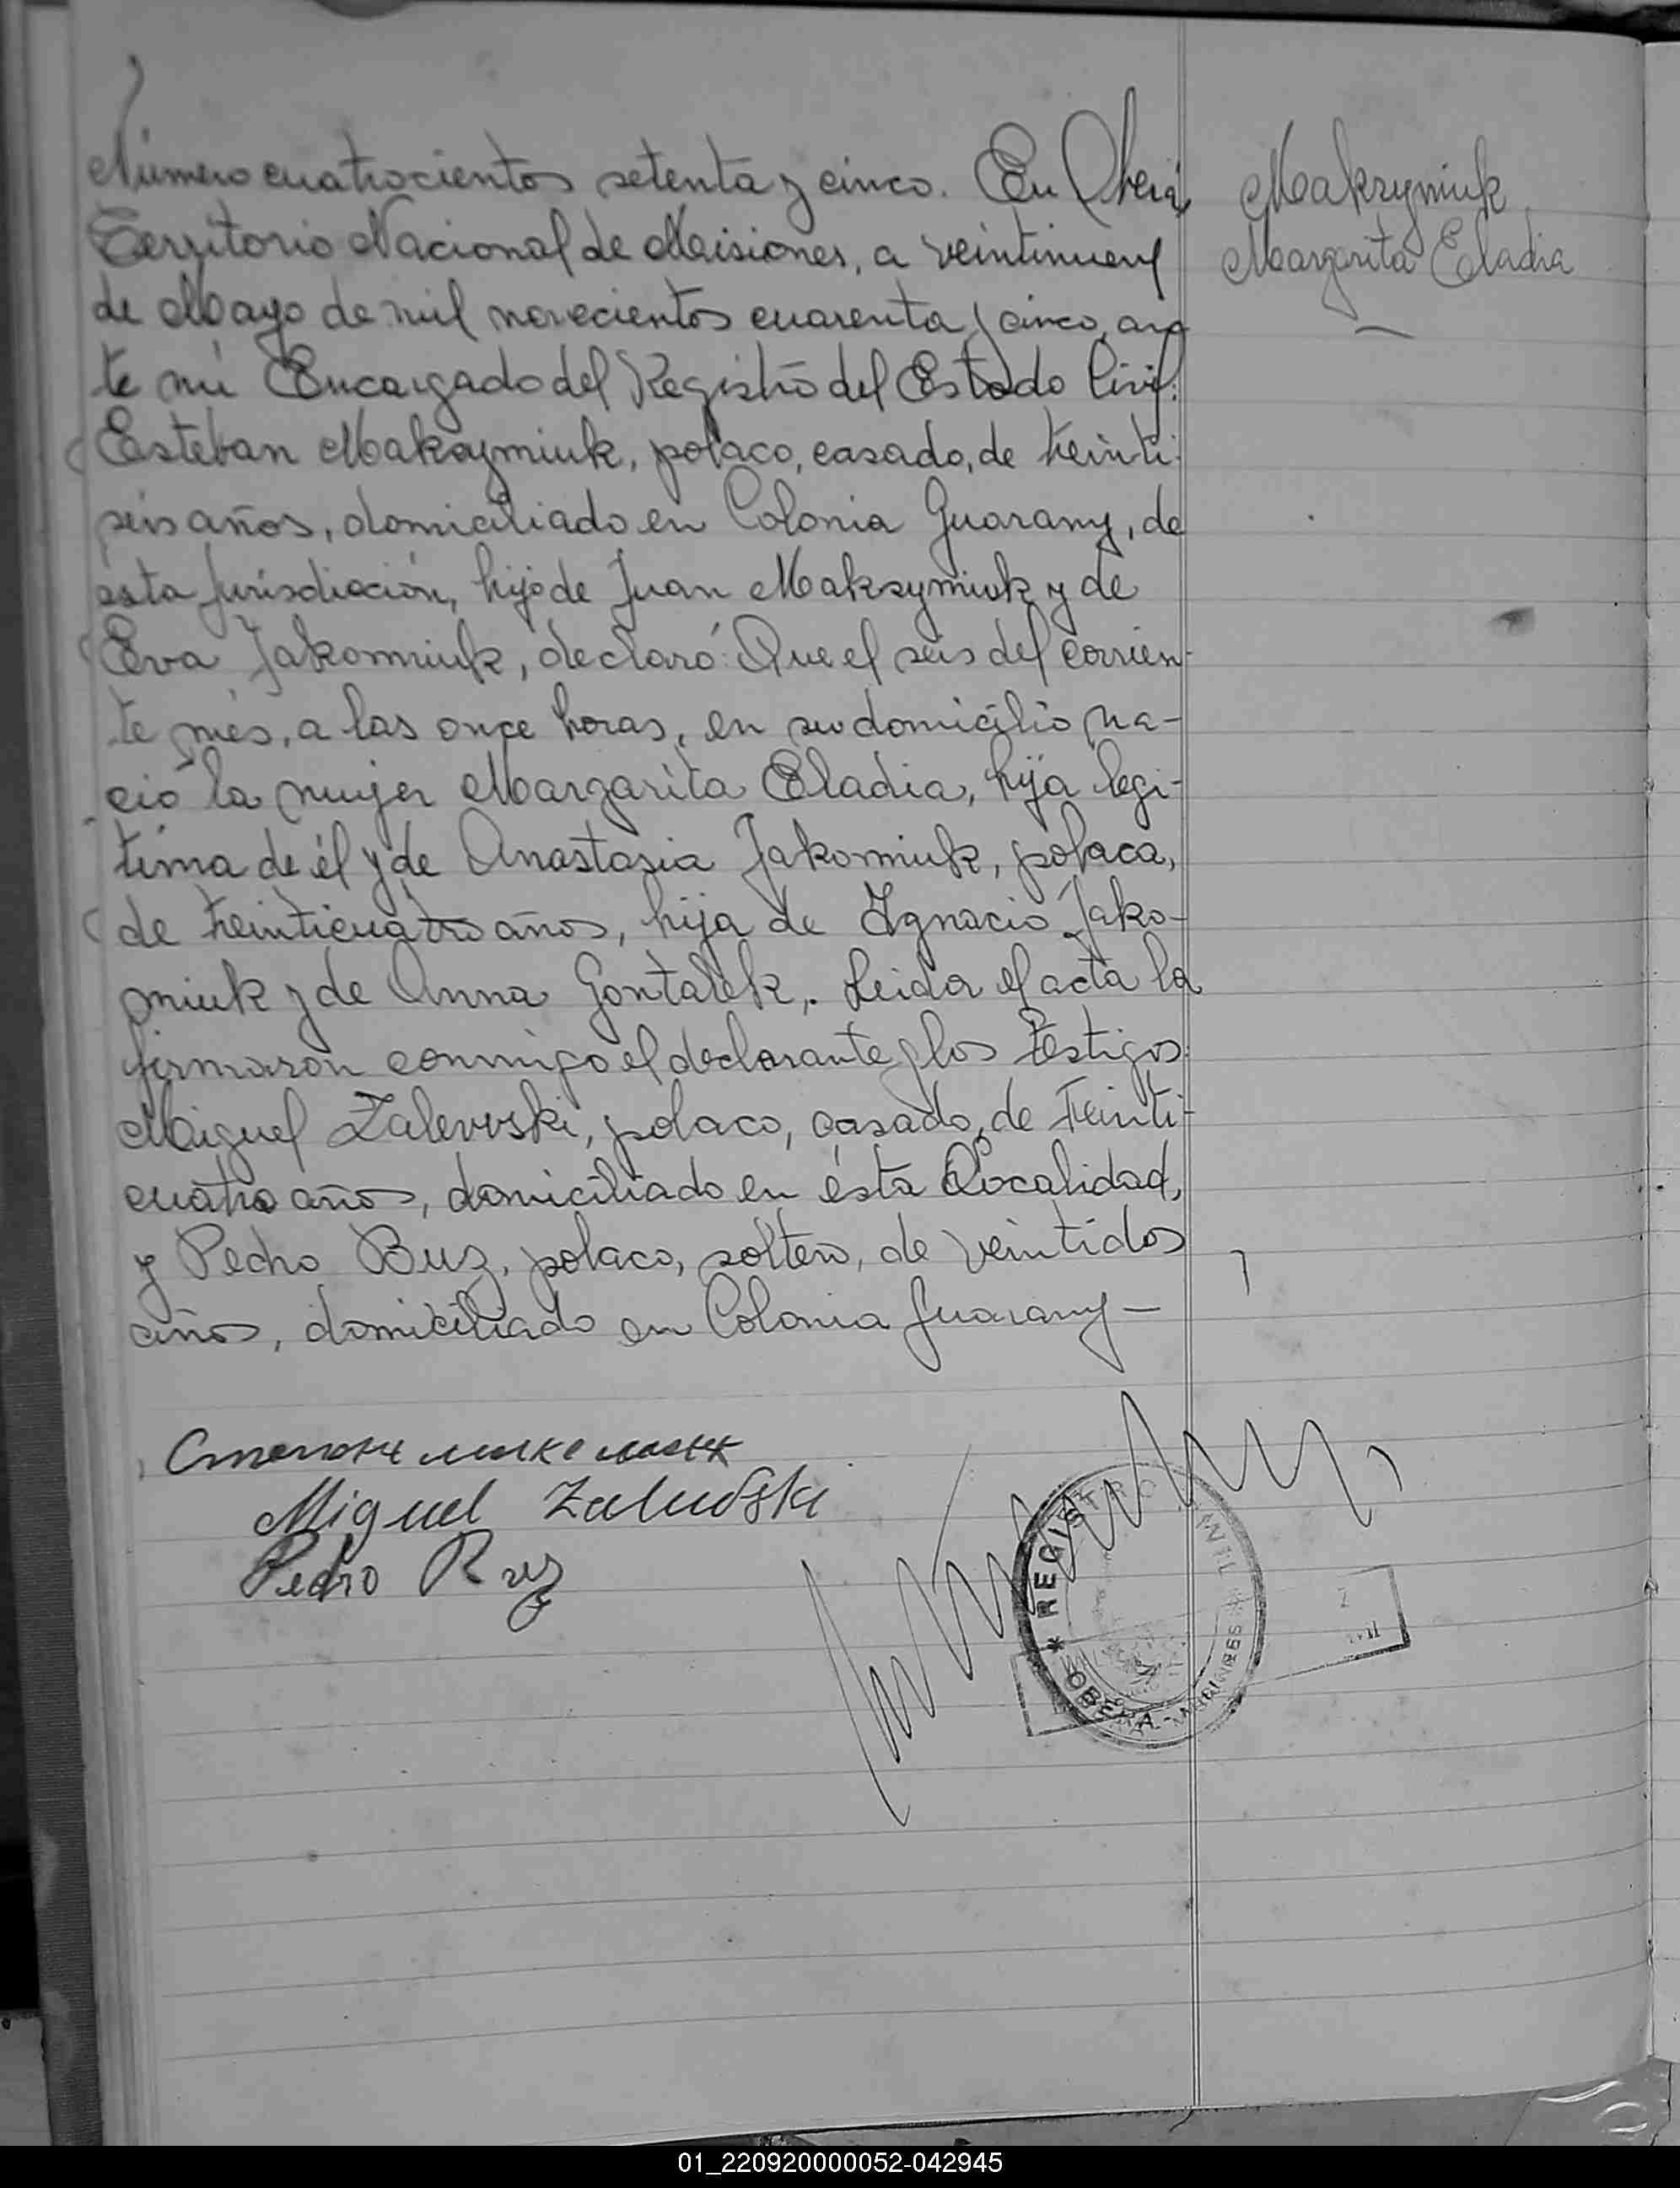 Número cuatrocientos setenta y cinco. En Oberá
Makszymiuk
Margarita Eladia
Territorio Nacional de Misiones, a veintinueve
de Mayo de mil novecientos cuarenta y cinco, an
te mí Encargado del Registro del Estado Civil:
Esteban Makszymiuk, polaco, casado, de treinti-
seis años, domiciliado en Colonia Guarany, de
ésta jurisdicción, hijo de Juan Makszymiuk y de
Eva Jakomiuk, declaró: Que el seis del corrien-
te més, a las once horas, en su domicilio na-
ció la mujer Margarita Eladia, hija legi-
tima de él y de Anastasia Jakomiuk, polaca,
de treinticuatro años, hija de Ignacio Jako-
miuk y de Anna Gontarek. Leida el acta la
firmaron conmigo el declarante y los testigos:
Miguel Zalewski, polaco, casado, de treinti-
cuatro años, domiciliado en ésta Localidad,
y Pedro Buz, polaco, soltero, de veintidos
años, domiciliado en Colonia Guarany —
Miguel Zalewski
Pedro Buz
REGISTRO CIVIL
OBERA - MISIONES
01_220920000052-042945